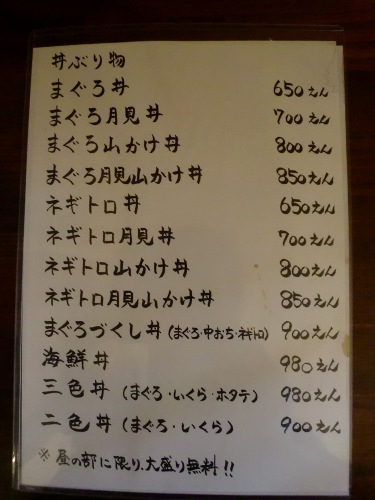 丼ぶり物
まぐろ丼 650えん
まぐろ月見丼 700えん
まぐろ山かけ丼 800えん
まぐろ月見山かけ丼 850えん
ネギトロ丼 650えん
ネギトロ月見丼 700えん
ネギトロ山かけ丼 800えん
ネギトロ月見山かけ丼 850えん
まぐろづくし丼(まぐろ・中おち・ネギトロ) 900えん
海鮮丼 980えん
三色丼(まぐろ・いくら・ホタテ) 980えん
二色丼(まぐろ・いくら) 900えん
※昼の部に限り、大盛り無料!!